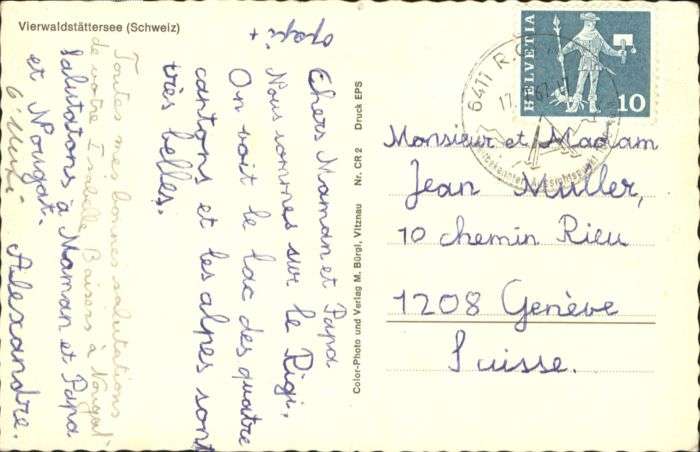 Vierwaldstättersee (Schweiz)
Chers Maman et Papa
+
Nous sommes sur le Rigi.
On voit le lac des quatre
cantons et les alpes sont
très belles.
Toutes mes bonnes salutations
de votre Isabelle Baisers à Nougat
Salutations à Maman et Papa
et Nougat.
Alexandre.
Color-Photo und Verlag M. Bürgi, Vitznau Nr. CR 2 Druck EPS
HELVETIA
10
6411
Monsieur et Madam
Jean Muller,
10 chemin Rieu
1208 Genève
Suisse.